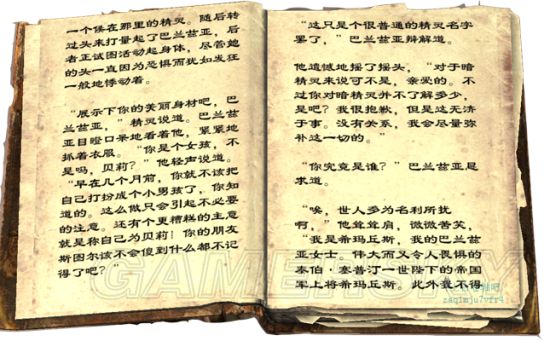 一个侯在那里的精灵。随后转
过头来打量起了巴兰兹亚，后
者正试图活动起身体，尽管她
的头一直因为恐惧而犹如发狂
一般地悸动着。
“展示下你的美丽身材吧，巴
兰兹亚，”精灵说道。巴兰兹
亚目瞪口呆地看着他，紧紧地
抓着衣服。“你是个女孩，不
是吗，贝莉？”他轻声说道。
“早在几个月前，你就不该把
自己打扮成个小男孩了，你知
道的。这么做只会引起不必要
的注意。还有个更糟糕的主意
就是称自己为贝莉！你的朋友
斯图尔该不会傻到什么都不记
得了吧？”
“这只是个很普通的精灵名字
罢了，”巴兰兹亚辩解道。
他遗憾地摇了摇头，“对于暗
精灵来说可不是，亲爱的。不
过你对暗精灵并不了解多少，
是吧？我很抱歉，但是这无济
于事。没有关系，我会尽量弥
补这一切的。”
“你究竟是谁？”巴兰兹亚恳
求道。
“唉，世人多为名利所扰
啊，”他耸耸肩，微微苦笑，
“我是希玛丘斯，我的巴兰兹
亚女士。伟大而又令人畏惧的
泰伯·塞普汀一世陛下的帝国
军上将希玛丘斯。此外我不得
GAMERSKY
zaqimju7vfr4